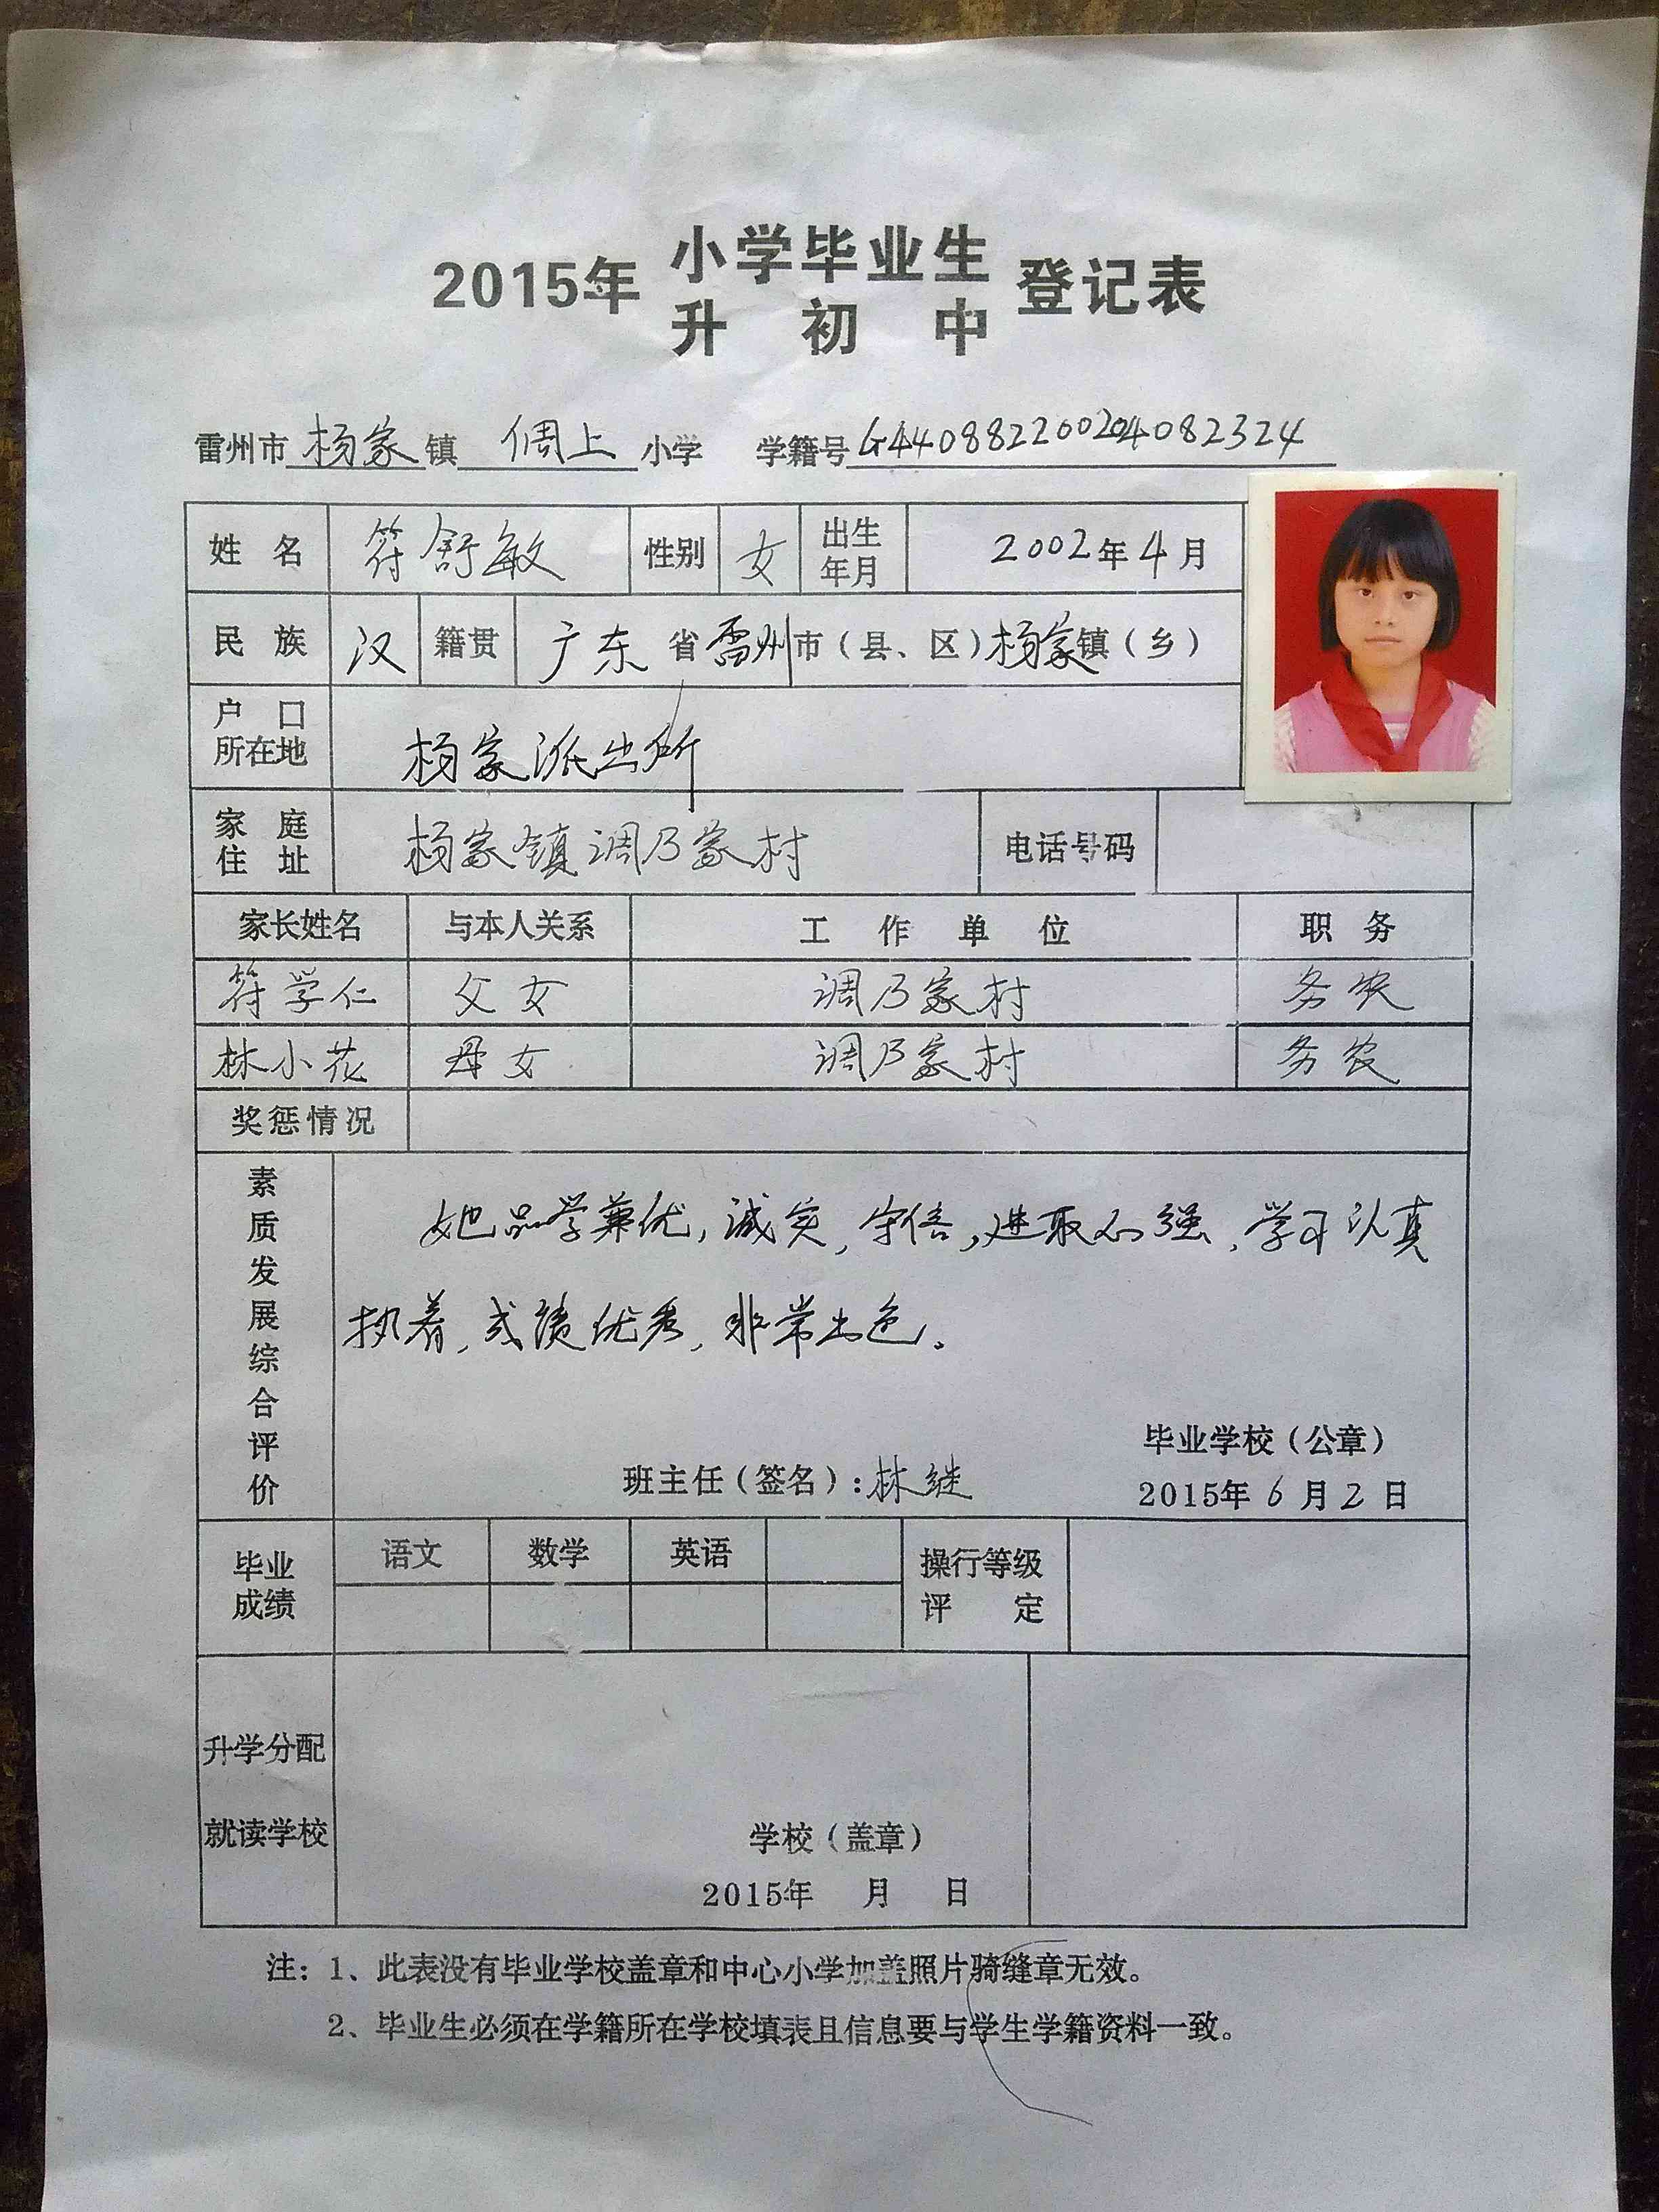 2015年 小学毕业生 登记表
升初中
雷州市杨家镇 倜上 小学 学籍号 G440882200204082324
姓名 符舒敏 性别 女 出生年月 2002年4月
民族 汉 籍贯 广东省雷州市（县、区）杨家镇（乡）
户口所在地 杨家派出所
家庭住址 杨家镇调乃家村 电话号码
家长姓名 与本人关系 工作单位 职务
符学仁 父女 调乃家村 务农
林小花 母女 调乃家村 务农
奖惩情况
素质发展综合评价
她品学兼优，诚实，守信，进取心强，学习认真
执着，成绩优秀，非常出色。
毕业学校（公章）
班主任（签名）：林继 2015年6月2日
毕业成绩 语文 数学 英语 操行等级评定
升学分配
就读学校
学校（盖章）
2015年 月 日
注：1、此表没有毕业学校盖章和中心小学加盖照片骑缝章无效。
2、毕业生必须在学籍所在学校填表且信息要与学生学籍资料一致。